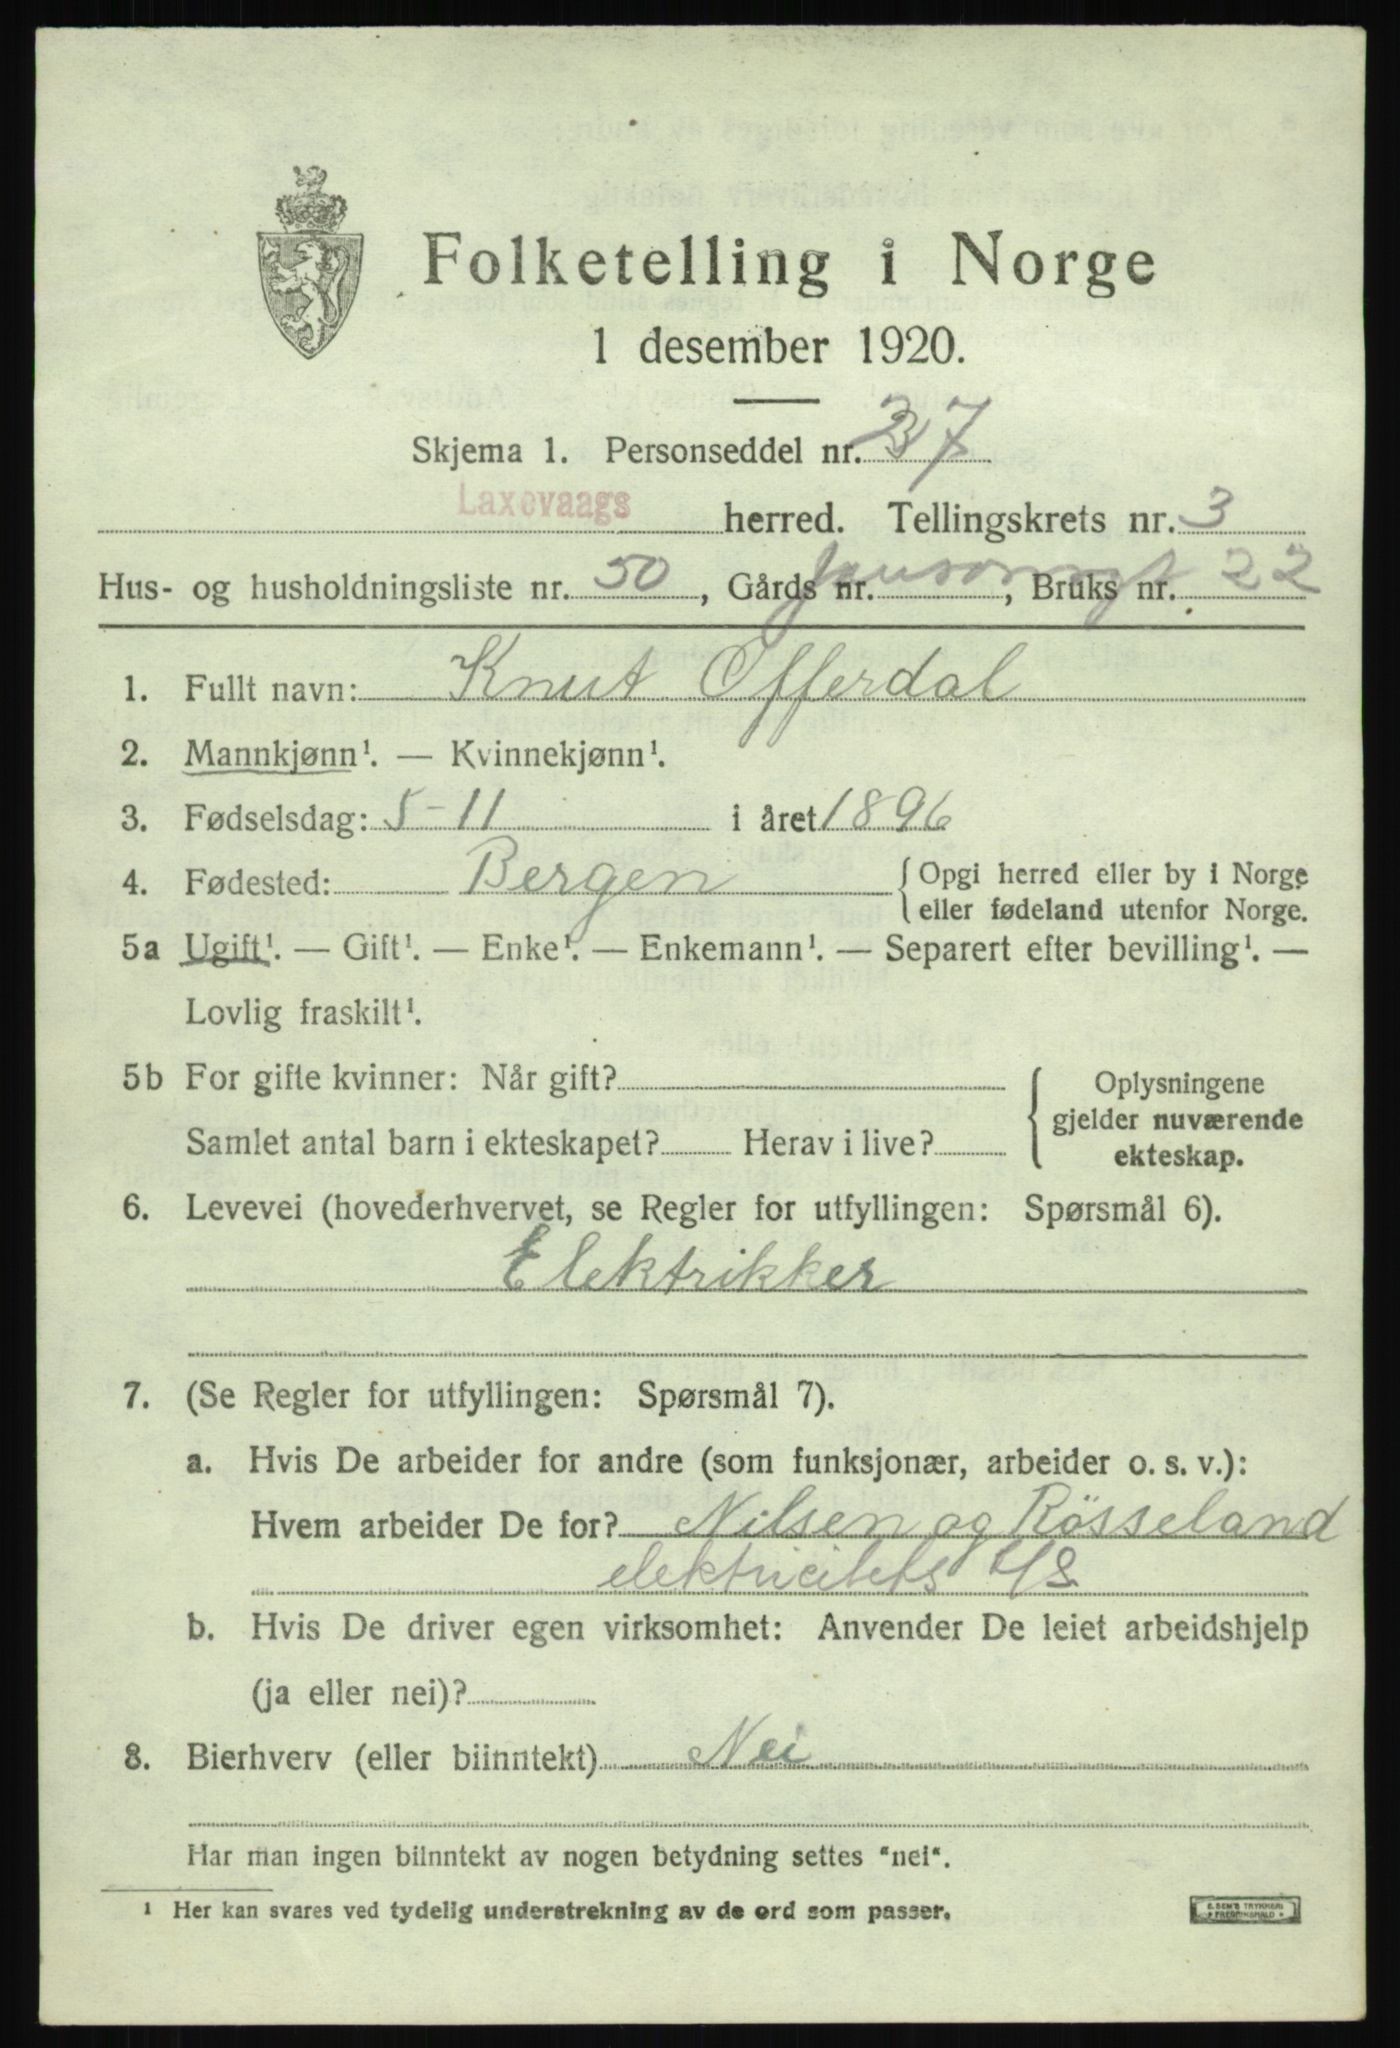 Folketelling i Norge
1 desember 1920.
Skjema 1. Personseddel nr. 37
Laxevaags herred. Tellingskrets nr. 3
Hus- og husholdningsliste nr. 50, Gårds nr. , Bruks nr. 22
1. Fullt navn: Knut Offerdal
2. Mannkjønn¹. — Kvinnekjønn¹.
3. Fødselsdag: 5-11 i året 1896
4. Fødested: Bergen { Opgi herred eller by i Norge
eller fødeland utenfor Norge.
5a Ugift¹. — Gift¹. — Enke¹. — Enkemann¹. — Separert efter bevilling¹. —
Lovlig fraskilt¹.
5b For gifte kvinner: Når gift? { Oplysningene
gjelder nuværende
Samlet antal barn i ekteskapet? Herav i live?
ekteskap.
6. Levevei (hovederhvervet, se Regler for utfyllingen: Spørsmål 6).
Elektrikker
7. (Se Regler for utfyllingen: Spørsmål 7).
a. Hvis De arbeider for andre (som funksjonær, arbeider o. s. v.):
Hvem arbeider De for? Nilsen og Rösseland
elektricitets A/S
b. Hvis De driver egen virksomhet: Anvender De leiet arbeidshjelp
(ja eller nei)?
8. Bierhverv (eller biinntekt) Nei
Har man ingen biinntekt av nogen betydning settes "nei".
¹ Her kan svares ved tydelig understrekning av de ord som passer.